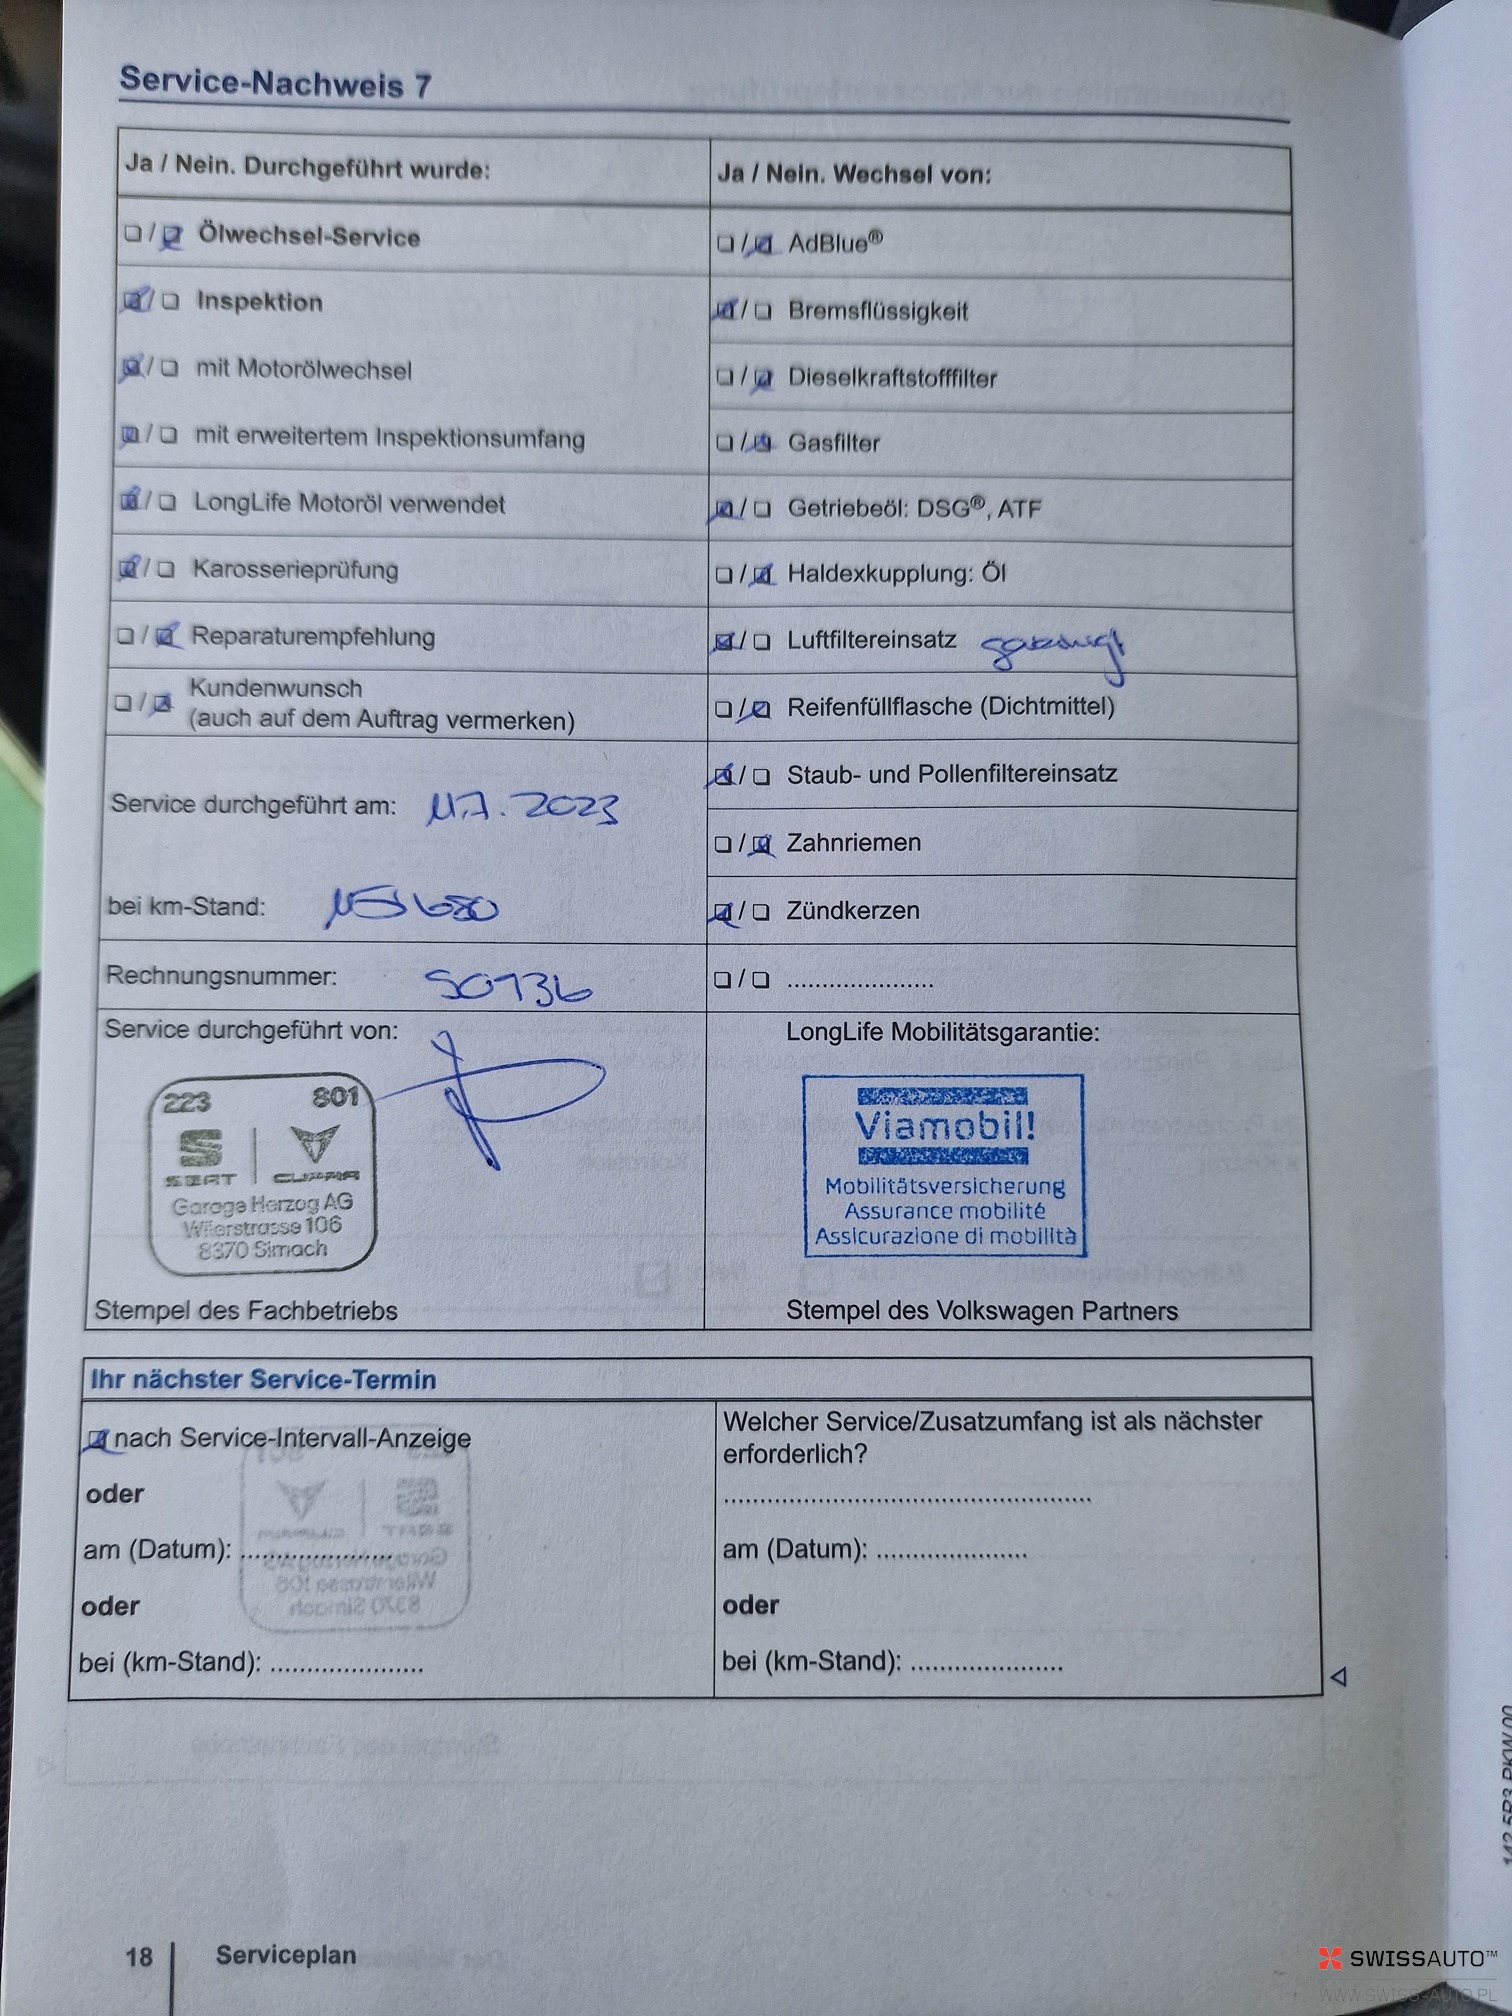 Service-Nachweis 7
Ja / Nein. Durchgeführt wurde:
❏ / ☑ Ölwechsel-Service
☑ / ❏ Inspektion
☑ / ❏ mit Motorölwechsel
☑ / ❏ mit erweitertem Inspektionsumfang
☑ / ❏ LongLife Motoröl verwendet
☑ / ❏ Karosserieprüfung
❏ / ☑ Reparaturempfehlung
❏ / ☑ Kundenwunsch
(auch auf dem Auftrag vermerken)
Service durchgeführt am: 11.7.2023
bei km-Stand:
Rechnungsnummer: 50736
Service durchgeführt von:
223 801
SEAT CUPRA
Garage Herzog AG
Wilerstrasse 106
8370 Sirnach
Stempel des Fachbetriebs
Ja / Nein. Wechsel von:
❏ / ☑ AdBlue®
☑ / ❏ Bremsflüssigkeit
❏ / ☑ Dieselkraftstofffilter
❏ / ☑ Gasfilter
☑ / ❏ Getriebeöl: DSG®, ATF
❏ / ☑ Haldexkupplung: Öl
☑ / ❏ Luftfiltereinsatz
❏ / ☑ Reifenfüllflasche (Dichtmittel)
☑ / ❏ Staub- und Pollenfiltereinsatz
❏ / ☑ Zahnriemen
☑ / ❏ Zündkerzen
❏ / ❏ .....................
LongLife Mobilitätsgarantie:
Viamobil!
Mobilitätsversicherung
Assurance mobilité
Assicurazione di mobilità
Stempel des Volkswagen Partners
Ihr nächster Service-Termin
☑ nach Service-Intervall-Anzeige
oder
am (Datum): .....................
oder
bei (km-Stand): .....................
Welcher Service/Zusatzumfang ist als nächster
erforderlich?
...................................................
am (Datum): .....................
oder
bei (km-Stand): .....................
18 Serviceplan
SWISSAUTO™
WWW.SWISS-AUTO.PL